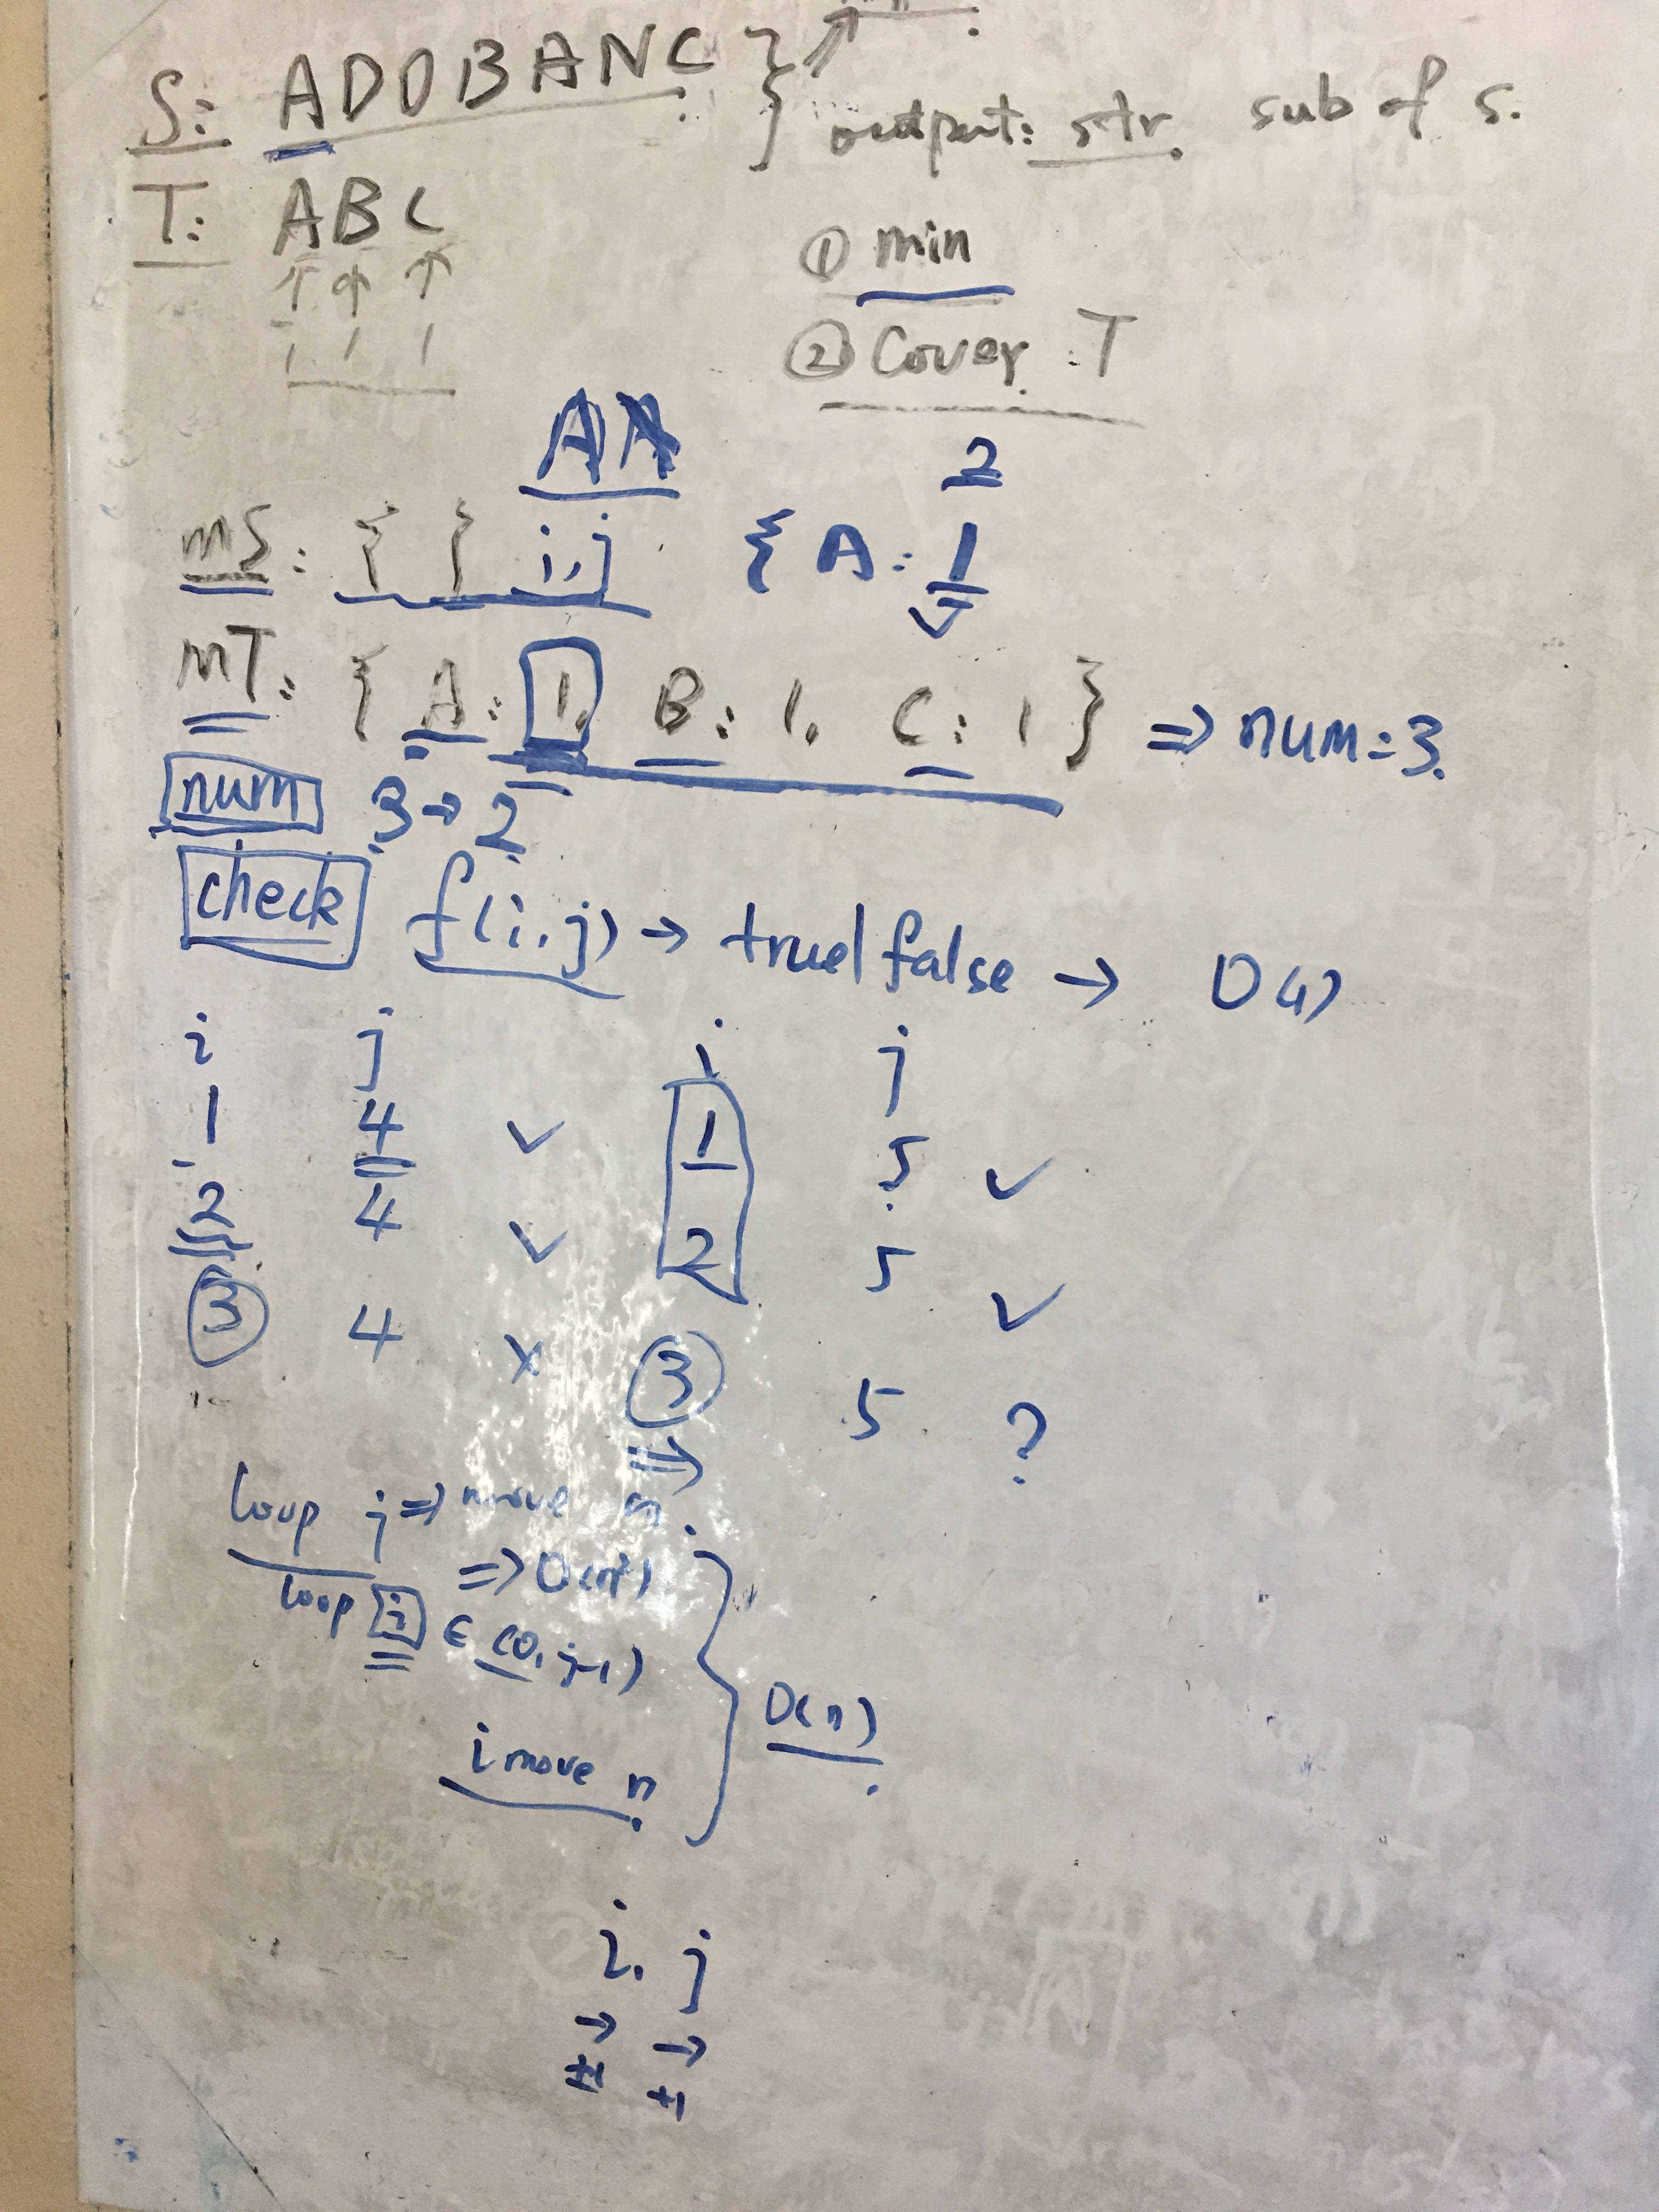 S: ADOBANC } ↗
output: str sub of s.
T: ABC
↑ ↑ ↑
1 1 1
① min
② Cover : T
AA
2
mS: { } i,j { A: 1
mT: { A: 1, B: 1, C: 1 } => num=3.
num 3→2
check f(i,j) → true|false → O(1)
i j i j
1 4 ✓ 1 5 ✓
2 4 ✓ 2 5 ✓
③ 4 x ③ 5 ?
=>
loop j => move n.
=> O(n²)
loop i ∈ (0, j-1)
O(n)
i move n
i, j
→ →
+1 +1